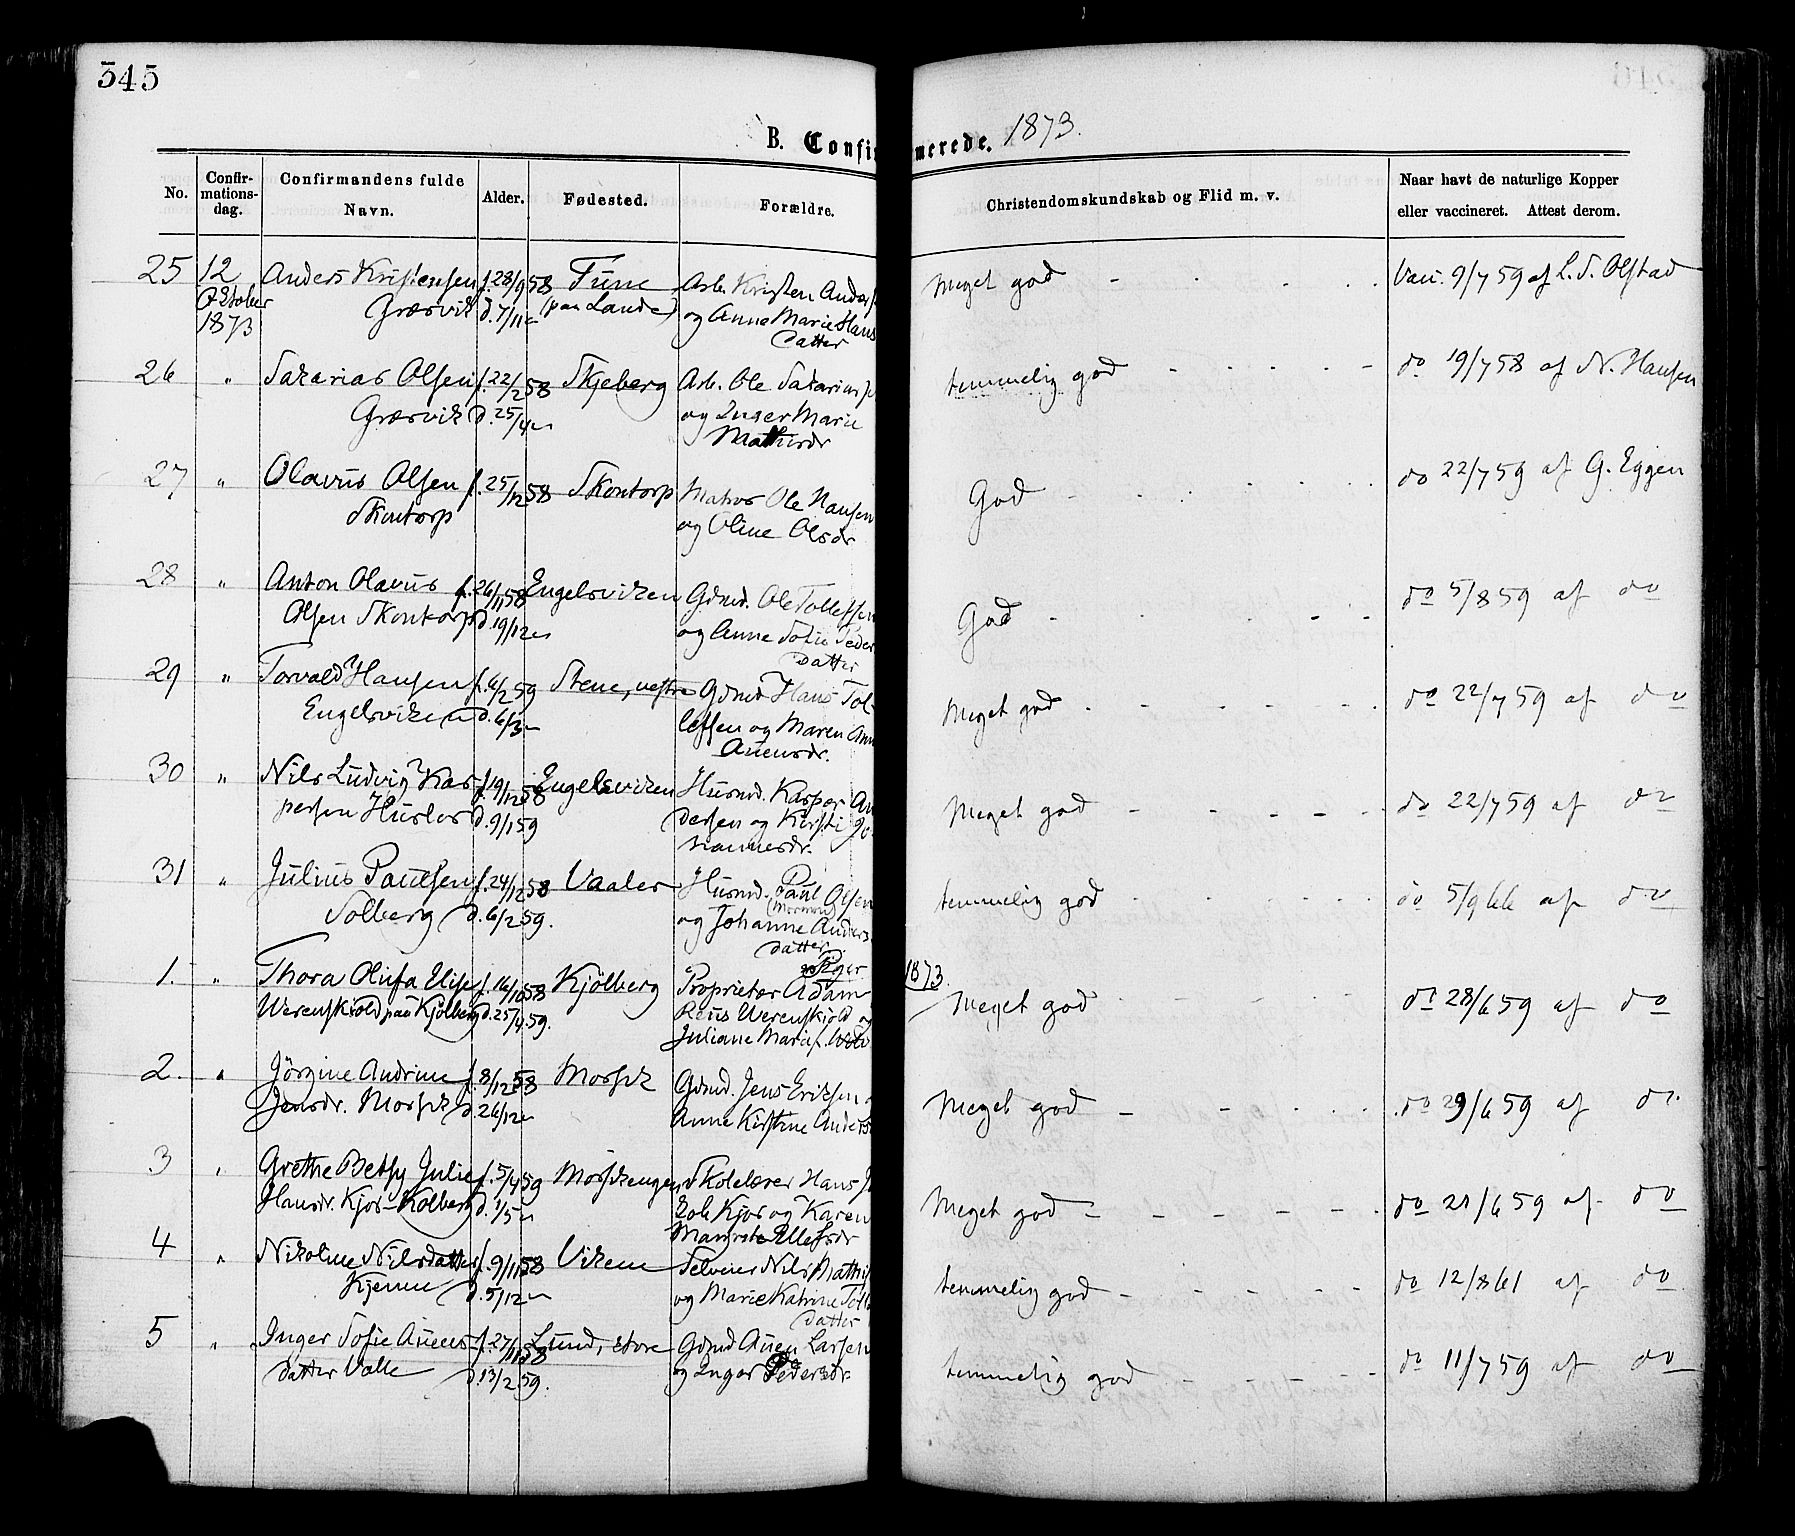 345
B. Confir merede. 1873.
No. Confir-mations-dag. Confirmandens fulde Navn. Alder. Fødested. Forældre. Christendomskundskab og Flid m. v. Naar havt de naturlige Kopper eller vaccineret. Attest derom.
25 12 Anders Kristensen f. 28/9 58 Tune Arb. Kristen Anders Meget god - - - Vac. 9/7 59 af L. S. Olstad
Oktober Græsvik d. 7/11 (paa Lande) og Anne Marie Hans
1873 datter
26 " Sakarias Olsen f. 22/2 58 Skjeberg Arb. Ole Sakarias temmelig god - - - do 19/7 58 af N. Hansen
Græsvik d. 25/4 og Inger Marie
Mathisdr
27 " Olavus Olsen f. 25/12 58 Skontorp Matros Ole Hansen God - - - do 22/7 59 af G. Eggen
Skontorp og Oline Olsdr
28 " Anton Olavus f. 26/11 58 Engelsviken Gdmd. Ole Tollefsen God - - - do 5/8 59 af do
Olsen Skontorp d. 19/12 og Anne Sofie Peder
datter
29 " Torvald Hansen f. 6/2 59 Stene, vestre Gdmd Hans Tol- Meget god - - - do 22/7 59 af do
Engelsviken d. 6/3 lefsen og Maren Ann
Auensdr.
30 " Nils Ludvig Kas- f. 19/12 58 Engelsviken Husmd. Kasper An Meget god - - - do 22/7 59 af do
persen Huslos d. 9/1 59 dersen og Kirsti Jo
hannesdr.
31 " Julius Paulsen f. 24/12 58 Vaaler Husmd. Paul Olsen temmelig god - - - do 5/9 66 af do
(Mormon)
Solberg d. 6/2 59. og Johanne Anders
datter
1. " Thora Olufa Elise f. 16/10 58 Kjölberg Proprietær Adam 1873. Meget god - - - do 28/6 59 af do
Werenskiold paa Kjölberg d. 25/4 59. Reus Werenskjold og
Juliane Marie f.
2. " Jörgine Andrine f. 8/12 58 Morfik Gdmd. Jens Eriksen Meget god - - - do 29/6 59 af do
Jensdr. Morfik d. 26/12 Anne Kirstine Anders
3 " Grethe Betsy Julie f. 5/4 59 Skolelærer Hans J Meget god - - - do 21/6 59 af do
Hansdr. Kjos-Kolberg d. 1/5 kob Kjos og Karen
Margrete Ellefsdr
4 " Nikoline Nilsdatter f. 9/11 58 Viken Selveier Nils Mathis temmelig god - - - do 12/8 61 af do
Kjenne d. 5/12 og Marie Katrine Toll
datter
5 " Inger Sofie Auens- f. 27/11 58 Lund, store Gdmd Auen Larsen temmelig god - - - do 11/7 59 af do
datter Valle d. 13/2 59. og Inger Pedersdr.